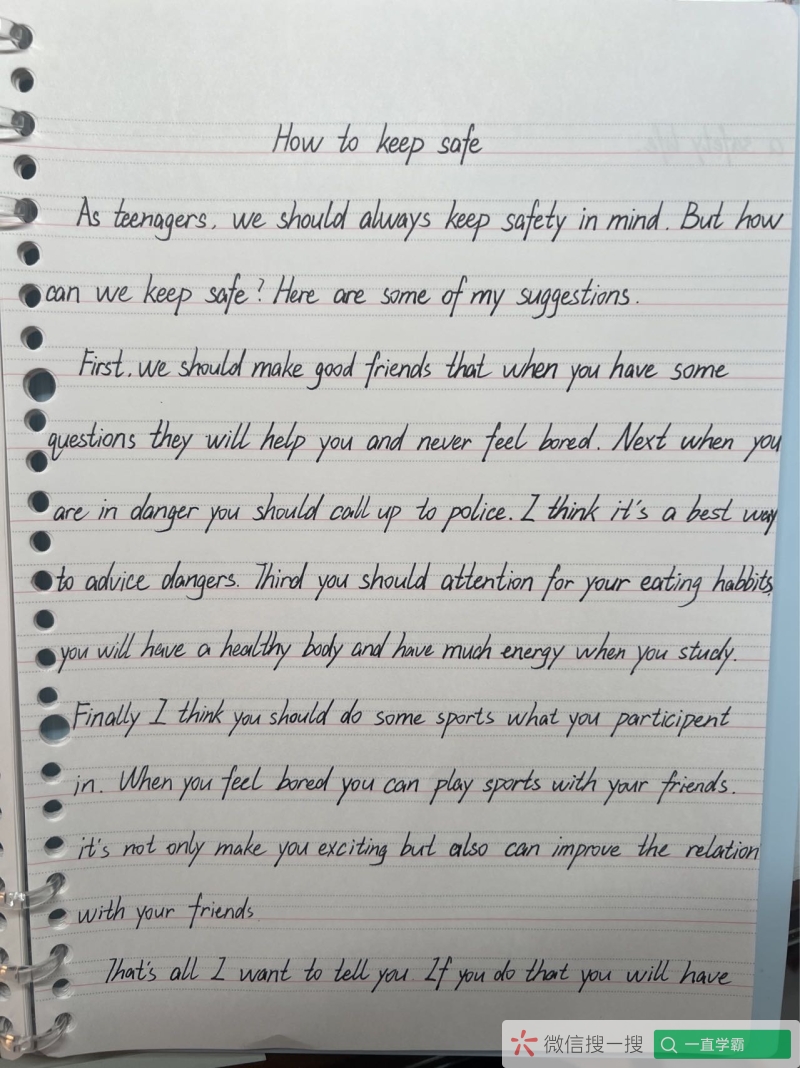 How to keep safe
As teenagers, we should always keep safety in mind. But how
can we keep safe? Here are some of my suggestions.
First, we should make good friends that when you have some
questions they will help you and never feel bored. Next when you
are in danger you should call up to police. I think it's a best way
to advice dangers. Third you should attention for your eating habbits
you will have a healthy body and have much energy when you study.
Finally I think you should do some sports what you participent
in. When you feel bored you can play sports with your friends.
it's not only make you exciting but also can improve the relation
with your friends
That's all I want to tell you If you do that you will have
微信搜一搜
一直学霸